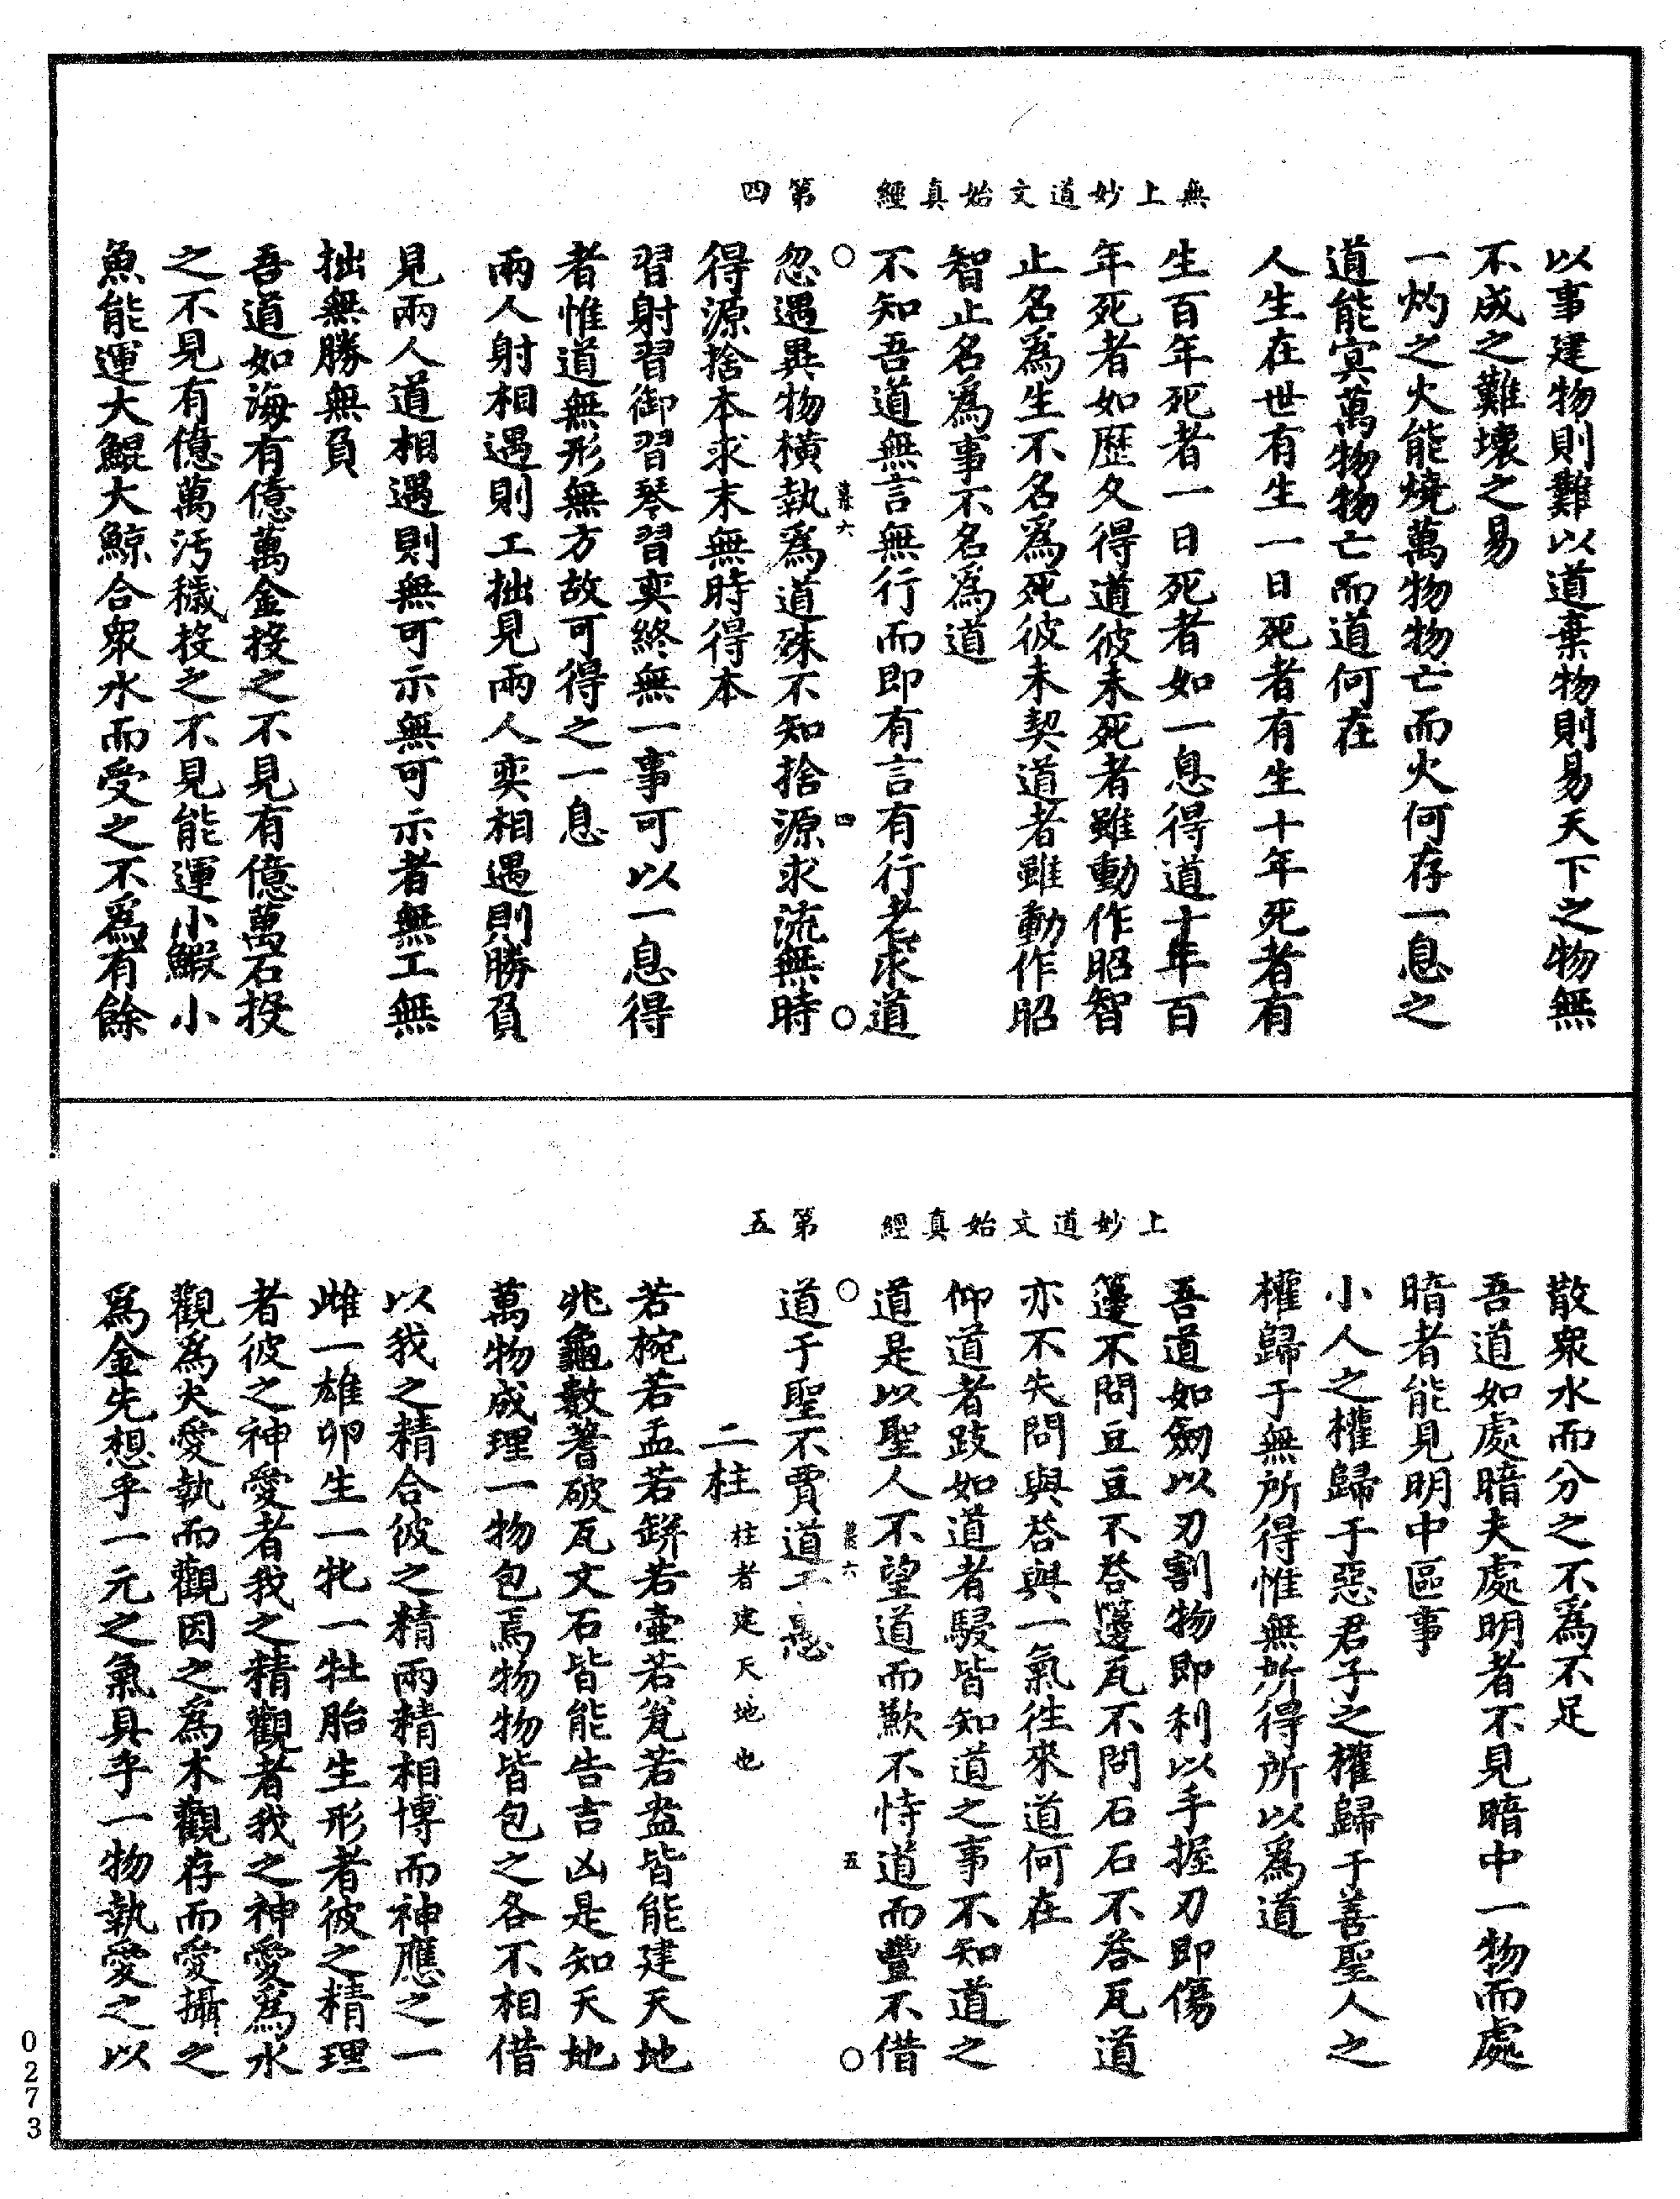 無上妙道文始真經　第四
以事建物則難以道棄物則易天下之物無
不成之難壞之易
一灼之火能燒萬物物亡而火何存一息之
道能冥萬物物亡而道何在
人生在世有生一日死者有生十年死者有
生百年死者一日死者如一息得道十年百
年死者如歷久得道彼未死者雖動作昭智
止名爲生不名爲死彼未契道者雖動作昭
智止名爲事不名爲道
不知吾道無言無行而即有言有行者求道
忽遇異物橫執爲道殊不知捨源求流無時
得源捨本求末無時得本
習射習御習琴習奕終無一事可以一息得
者惟道無形無方故可得之一息
兩人射相遇則工拙見兩人奕相遇則勝負
見兩人道相遇則無可示無可示者無工無
拙無勝無負
吾道如海有億萬金投之不見有億萬石投
之不見有億萬汚穢投之不見能運小鰕小
魚能運大鯤大鯨合衆水而受之不爲有餘
上妙道文始真經　第五
散衆水而分之不爲不足
吾道如處暗夫處明者不見暗中一物而處
暗者能見明中區事
小人之權歸于惡君子之權歸于善聖人之
權歸于無所得惟無所得所以爲道
吾道如劒以刃割物即利以手握刃即傷
籩不問豆豆不荅籩瓦不問石石不荅瓦道
亦不失問與荅與一氣徃來道何在
仰道者跂如道者駸皆知道之事不知道之
道是以聖人不望道而歉不恃道而豐不借
道于聖不賈道于愚
二柱 柱者建天地也
若椀若盂若缾若壷若瓮若盎皆能建天地
兆龜數蓍破瓦文石皆能告吉凶是知天地
萬物成理一物包焉物物皆包之各不相借
以我之精合彼之精兩精相搏而神應之一
雌一雄卵生一牝一牡胎生形者彼之精理
者彼之神愛者我之精觀者我之神愛爲水
觀爲火愛執而觀因之爲木觀存而愛攝之
爲金先想乎一元之氣具乎一物執愛之以
0273